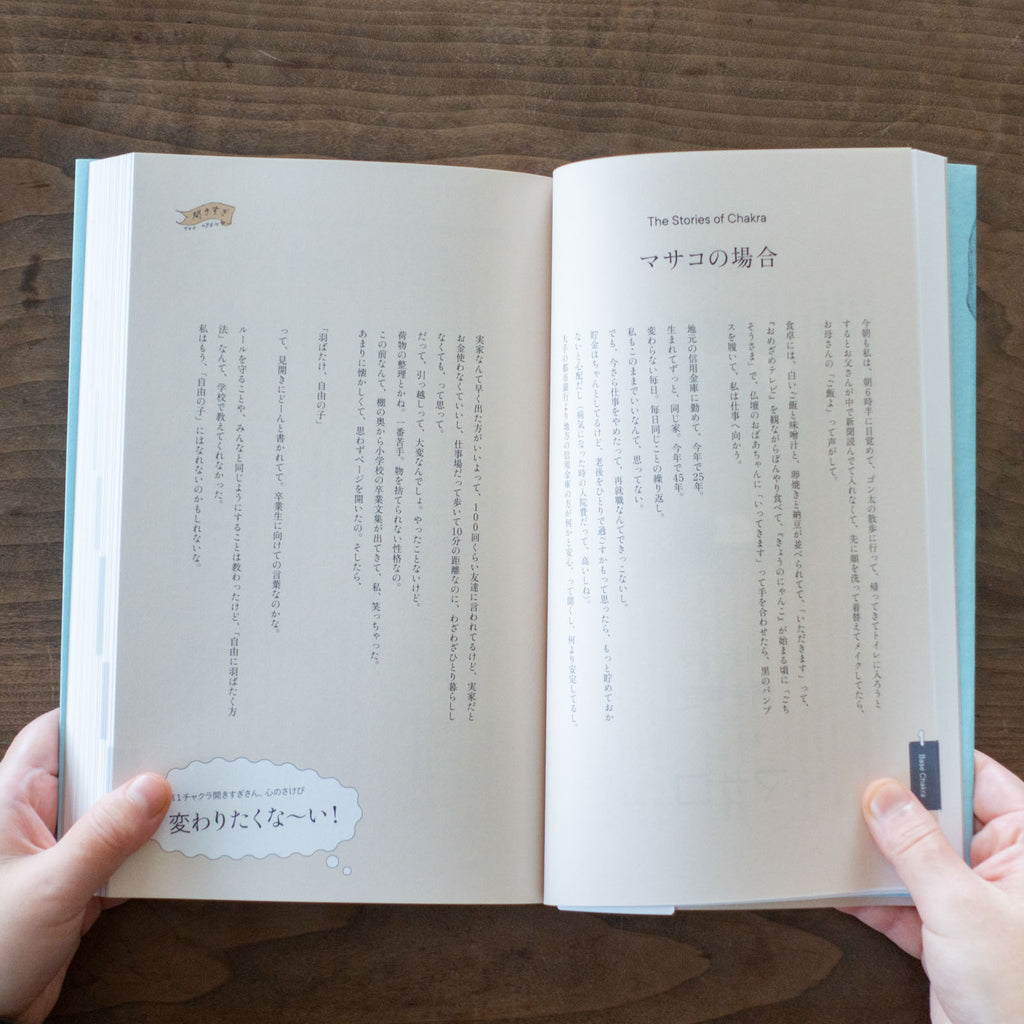 The Stories of Chakra
マサコの場合
今朝も私は、朝6時半に目覚めて、ゴン太の散歩に行って、帰ってきてトイレに入ろうと
するとお父さんが中で新聞読んでて入れなくて、先に顔を洗って着替えてメイクしてたら、
お母さんの「ご飯よ」って声がして。
食卓には、白いご飯と味噌汁と、卵焼きと納豆が並べられてて、「いただきます」って、
『おめざめテレビ』を観ながらぼんやり食べて、『きょうのにゃんこ』が始まる頃に「ごち
そうさま」で、仏壇のおばあちゃんに「いってきます」って手を合わせたら、黒のパンプ
スを履いて、私は仕事へ向かう。
地元の信用金庫に勤めて、今年で25年。
生まれてずっと、同じ家。今年で45年。
変わらない毎日。毎日同じことの繰り返し。
私もこのままでいいなんて、思ってない。
でも、今さら仕事をやめたって、再就職なんてできっこないし。
貯金はちゃんとしてるけど、老後をひとりで過ごすかもって思ったら、もっと貯めておか
ないと心配だし（病気になった時の入院費だって、高いしね）。
大手の都市銀行より地方の信用金庫の方が何かと安心、って聞くし、何より安定してるし。
Base Chakra
開きすぎ
TOO OPEN
実家なんて早く出た方がいいよって、100回くらい友達に言われてるけど、実家だと
お金使わなくていいし、仕事場だって歩いて10分の距離なのに、わざわざひとり暮らしし
なくても、って思って。
だって、引っ越しって、大変なんでしょ。やったことないけど。
荷物の整理とかね。一番苦手。物を捨てられない性格なの。
この前なんて、棚の奥から小学校の卒業文集が出てきて、私、笑っちゃった。
あまりに懐かしくて、思わずページを開いたの。そしたら、
「羽ばたけ、自由の子」
って、見開きにどーんと書かれてて。卒業生に向けての言葉なのかな。
ルールを守ることや、みんなと同じようにすることは教わったけど、「自由に羽ばたく方
法」なんて、学校で教えてくれなかった。
私はもう、「自由の子」にはなれないのかもしれないな。
1チャクラ開きすぎさん、心のさけび
変わりたくな〜い！